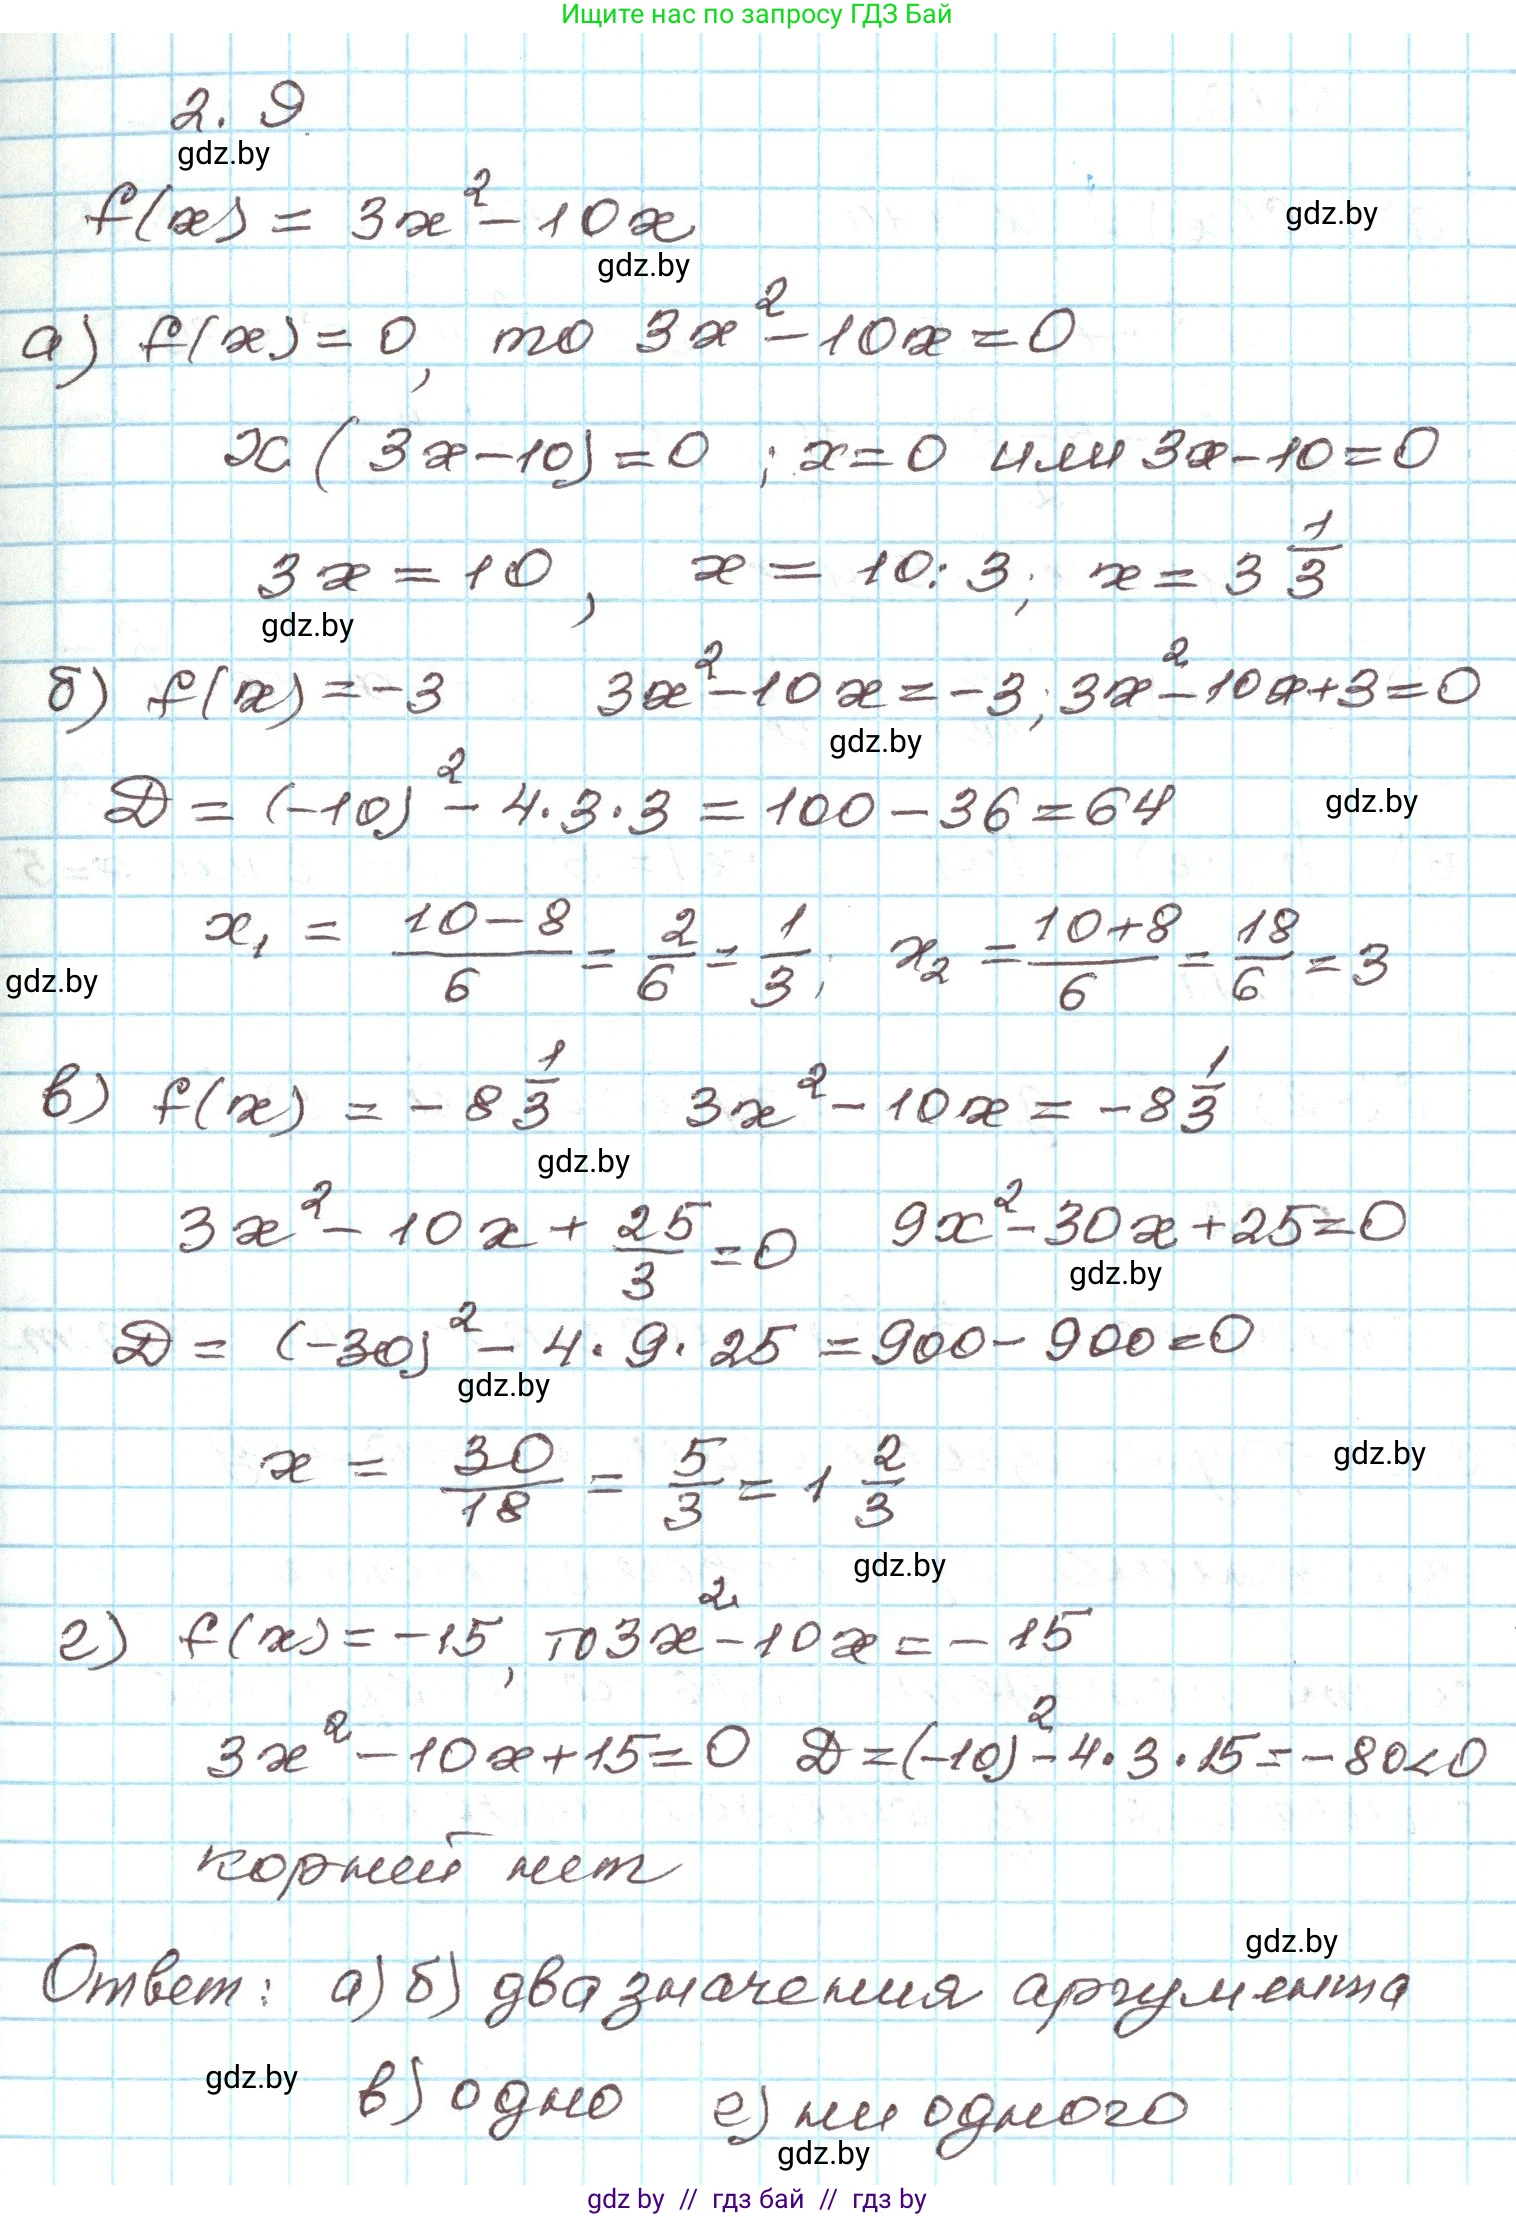 Ищите нас по запросу ГДЗ Бай
2. 9
gdz.by
f(x) = 3x² - 10x
gdz.by
gdz.by
а) f(x) = 0, то 3x² - 10x = 0
x(3x - 10) = 0 ; x = 0 или 3x - 10 = 0
3x = 10, x = 10 : 3; x = 3 1/3
gdz.by
б) f(x) = -3 3x² - 10x = -3; 3x² - 10x + 3 = 0
gdz.by
D = (-10)² - 4·3·3 = 100 - 36 = 64
gdz.by
x₁ = (10-8)/6 = 2/6 = 1/3; x₂ = (10+8)/6 = 18/6 = 3
gdz.by
в) f(x) = -8 1/3 3x² - 10x = -8 1/3
gdz.by
3x² - 10x + 25/3 = 0 9x² - 30x + 25 = 0
gdz.by
D = (-30)² - 4·9·25 = 900 - 900 = 0
gdz.by
x = 30/18 = 5/3 = 1 2/3
gdz.by
gdz.by
г) f(x) = -15, то 3x² - 10x = -15
3x² - 10x + 15 = 0 D = (-10)² - 4·3·15 = -80 < 0
корней нет
gdz.by
Ответ: а) б) два значения аргумента
gdz.by
в) одно г) ни одного
gdz.by
gdz by // гдз бай // гдз by